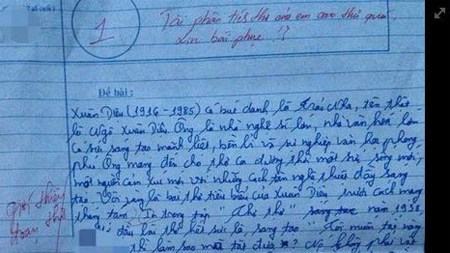 1
Tài phân tích thơ của em cao thủ quá,
xin bái phục !?
Đề bài:
Xuân Diệu (1916 - 1985) có bút danh là Trảo Nha, tên thật
là Ngô Xuân Diệu. Ông là nhà nghệ sĩ lớn, nhà văn hóa lớn
có sức sáng tạo mãnh liệt, bền bỉ và sự nghiệp văn học phong
phú. Ông mang đến cho thơ ca đương thời một sức sống mới,
một nguồn cảm xúc mới với những cách tân nghệ thuật đầy sáng
tạo. Vội vàng là bài thơ tiêu biểu của Xuân Diệu trước cách mạng
tháng tám. In trong tập "Thơ thơ" năm 1938,
đầu bài thơ hết sức là sáng tạo "Tôi muốn tắt nắng
thì làm sao mà tắt được ?
Giới thiệu